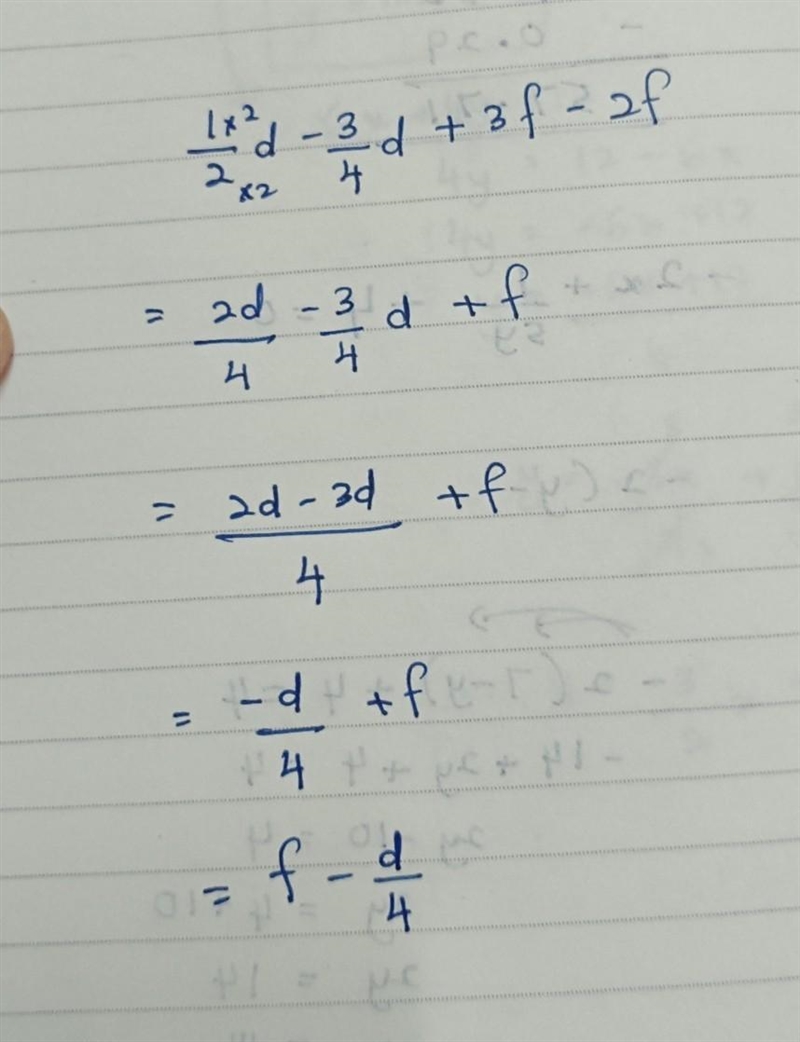 1×2/2×2 d - 3/4 d + 3f - 2f
= 2d/4 - 3/4 d + f
= 2d - 3d/4 + f
= -d/4 + f
= f - d/4